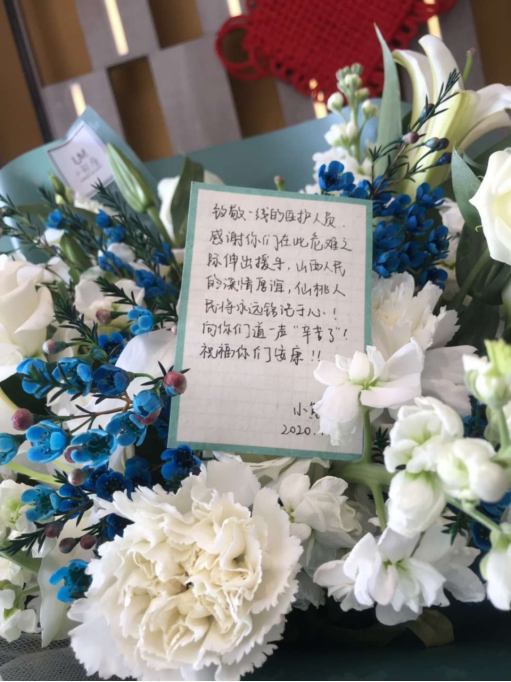 UM
致敬一线的医护人员.
感谢你们在此危难之
际伸出援手,山西人民
的深情厚谊,仙桃人
民将永远铭记于心!
向你们道一声"辛苦了"!
祝福你们安康!!
小
2020.